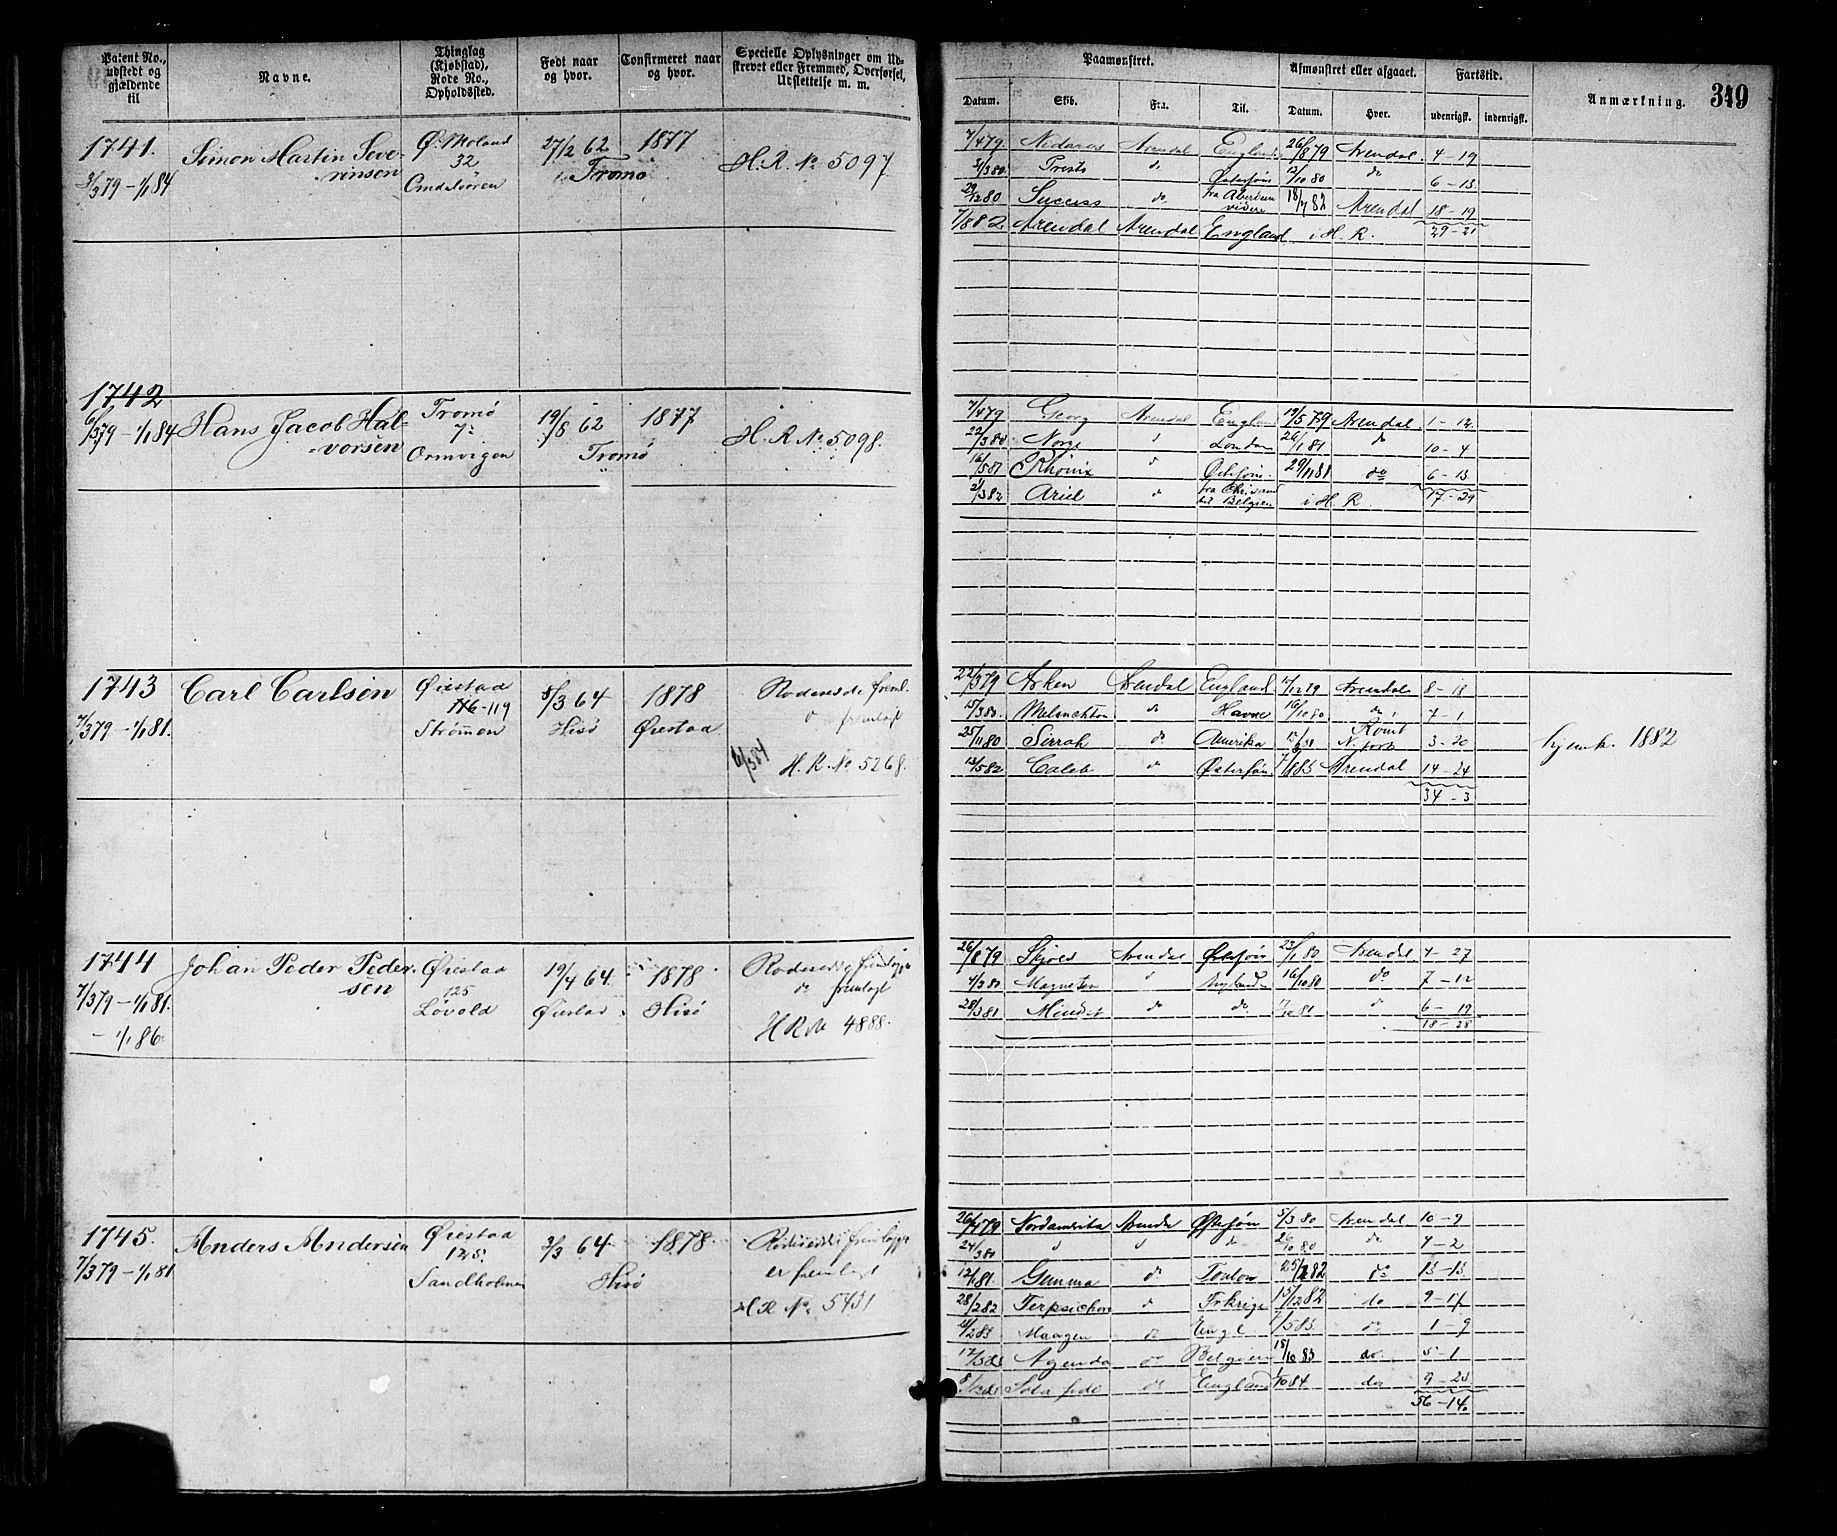 Patent No., udstedt og gjældende til
Navne.
Thinglag (Kjøbstad), Rode No., Opholdssted.
Født naar og hvor.
Confirmeret naar og hvor.
Specielle Oplysninger om Udskrevet eller Fremmed, Overførsel, Udslettelse m. m.
Paamønstret.
Afmønstret eller afgaaet.
Fartstid.
Anmærkning.
349
Datum.
Skib.
Fra.
Til.
Datum.
Hvor.
udenrigsk.
indenrigsk.
1741.
3/3 79 – 1/1 84
Simon Martin Seve-
rinsen
Ø. Moland
32
27/2 62
Tromø
1877
H. R. No 5097
7/4 79 Nidaros Arendal England 26/8 79 Arendal 4 – 19
3/3 80 Presto do Østersøn 12/10 80 do 6 – 13
29/12 80 Success do fra Aberdeen videre 18/7 82 Arendal 18 – 19
7/8 82 Arendal Arendal England i H. R. 29 – 21
1742
6/3 79 – 1/1 84
Hans Jacob Hal-
vorsen
Tromø
7
Ormvigen
19/8 62
Tromø
1877
H. R. No 5098.
7/4 79 Georg Arendal England 19/5 79 Arendal 1 – 12
22/3 80 Norge London 26/1 81 do 10 – 4
16/5 81 Østersøn 29/11 81 do 6 – 13
2/3 82 Ariel do fra Chr.sand til Belgien i H. R. 17 – 29
1743
7/3 79 – 1/1 81.
Carl Carlsen
Øiestad
116-119
Strømmen
5/3 64
Hisø
1878
Øiestad
fremlagt
6/3 84
H. R. No 5268.
22/3 79 Arken Arendal England 17/12 79 Arendal 8 – 18
15/3 80 Melanchton do Havre 16/10 80 do 7 – 1
25/11 80 Sirrah do Amerika Rømt N. York 3 – 20
13/5 82 Caleb do Østersøn Arendal 14 – 24
34 – 3
hjemk. 1882
1744
7/3 79 – 1/1 81.
– 1/1 86.
Johan Peder Peder-
sen
Øiestad
125
Løvold
19/4 64.
Øiestad
1878
Hisø
fremlagt
H R No 4888.
26/8 79 Skjold Arendal Østersøn 23/1 80 Arendal 4 – 27
4/3 80 Magneten England 16/10 80 do 7 – 12
28/3 81 Mindet do do do 6 – 19
18 – 28
1745.
7/3 79 – 1/1 81
Anders Andersen
Øiestad
125
Sandholmen
3/3 64
Hisø
1878
er fremlagt
H R No 5431
Nordamerika Arendal Østersøn 5/3 80 Arendal 10 – 9
24/3 80 do do 7 – 2
12/1 81 Gemma do Toulon do 13 – 13
28/2 82 Terpsichore do Frkrige do 9 – 17
Maagen do Engl do 1 – 9
Agenda do Belgien 18/10 83 do 5 – 1
Sola fide do England 1/10 84 do 9 – 23
56 – 14.